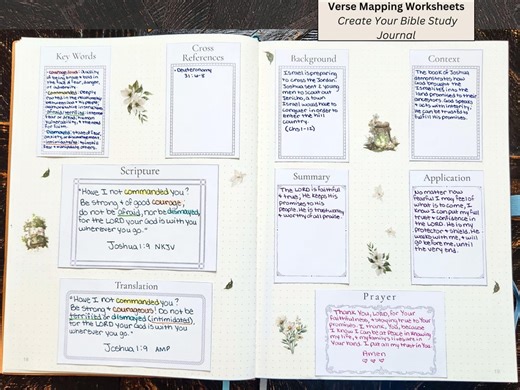 Verse Mapping Worksheets
Create Your Bible Study
Journal
Key Words
Cross
References
- Deuteronomy
31:6-8
Background
Israel is preparing
to cross the Jordan.
Joshua sent 2 young
men to scout out
Jericho, a town
Israel would have to
conquer in order to
enter the hill
country.
Context
The book of Joshua
demonstrates how
God brought the
Israelites into the
land promised to their
ancestors. God speaks
& acts with integrity.
He can be trusted to
fulfill His promises.
Scripture
"Have I not commanded you?
Be strong & of good courage;
do not be afraid, nor be dismayed,
for the LORD your God is with you
wherever you go."
Joshua 1:9 NKJV
Summary
The LORD is faithful
& true; He keeps His
promises to His
people. He is trustworthy
& worthy of all praise.
Application
No matter how
fearful I may feel of
what is to come, I
know I can put my full
trust & confidence in
the LORD. He is my
protector & shield. He
walks with me, & will
go before me, until
the very end.
Translation
"Have I not commanded you?
Be strong & courageous! Do not be
terrified or dismayed (intimidated),
for the LORD your God is with you
wherever you go."
Joshua 1:9 AMP
Prayer
Thank You, LORD, for Your
faithfulness, & staying true to Your
promises. I thank You, because
I know I can be at peace in knowing
my life & my family's lives are in
Your hand. I put all my trust in You.
Amen